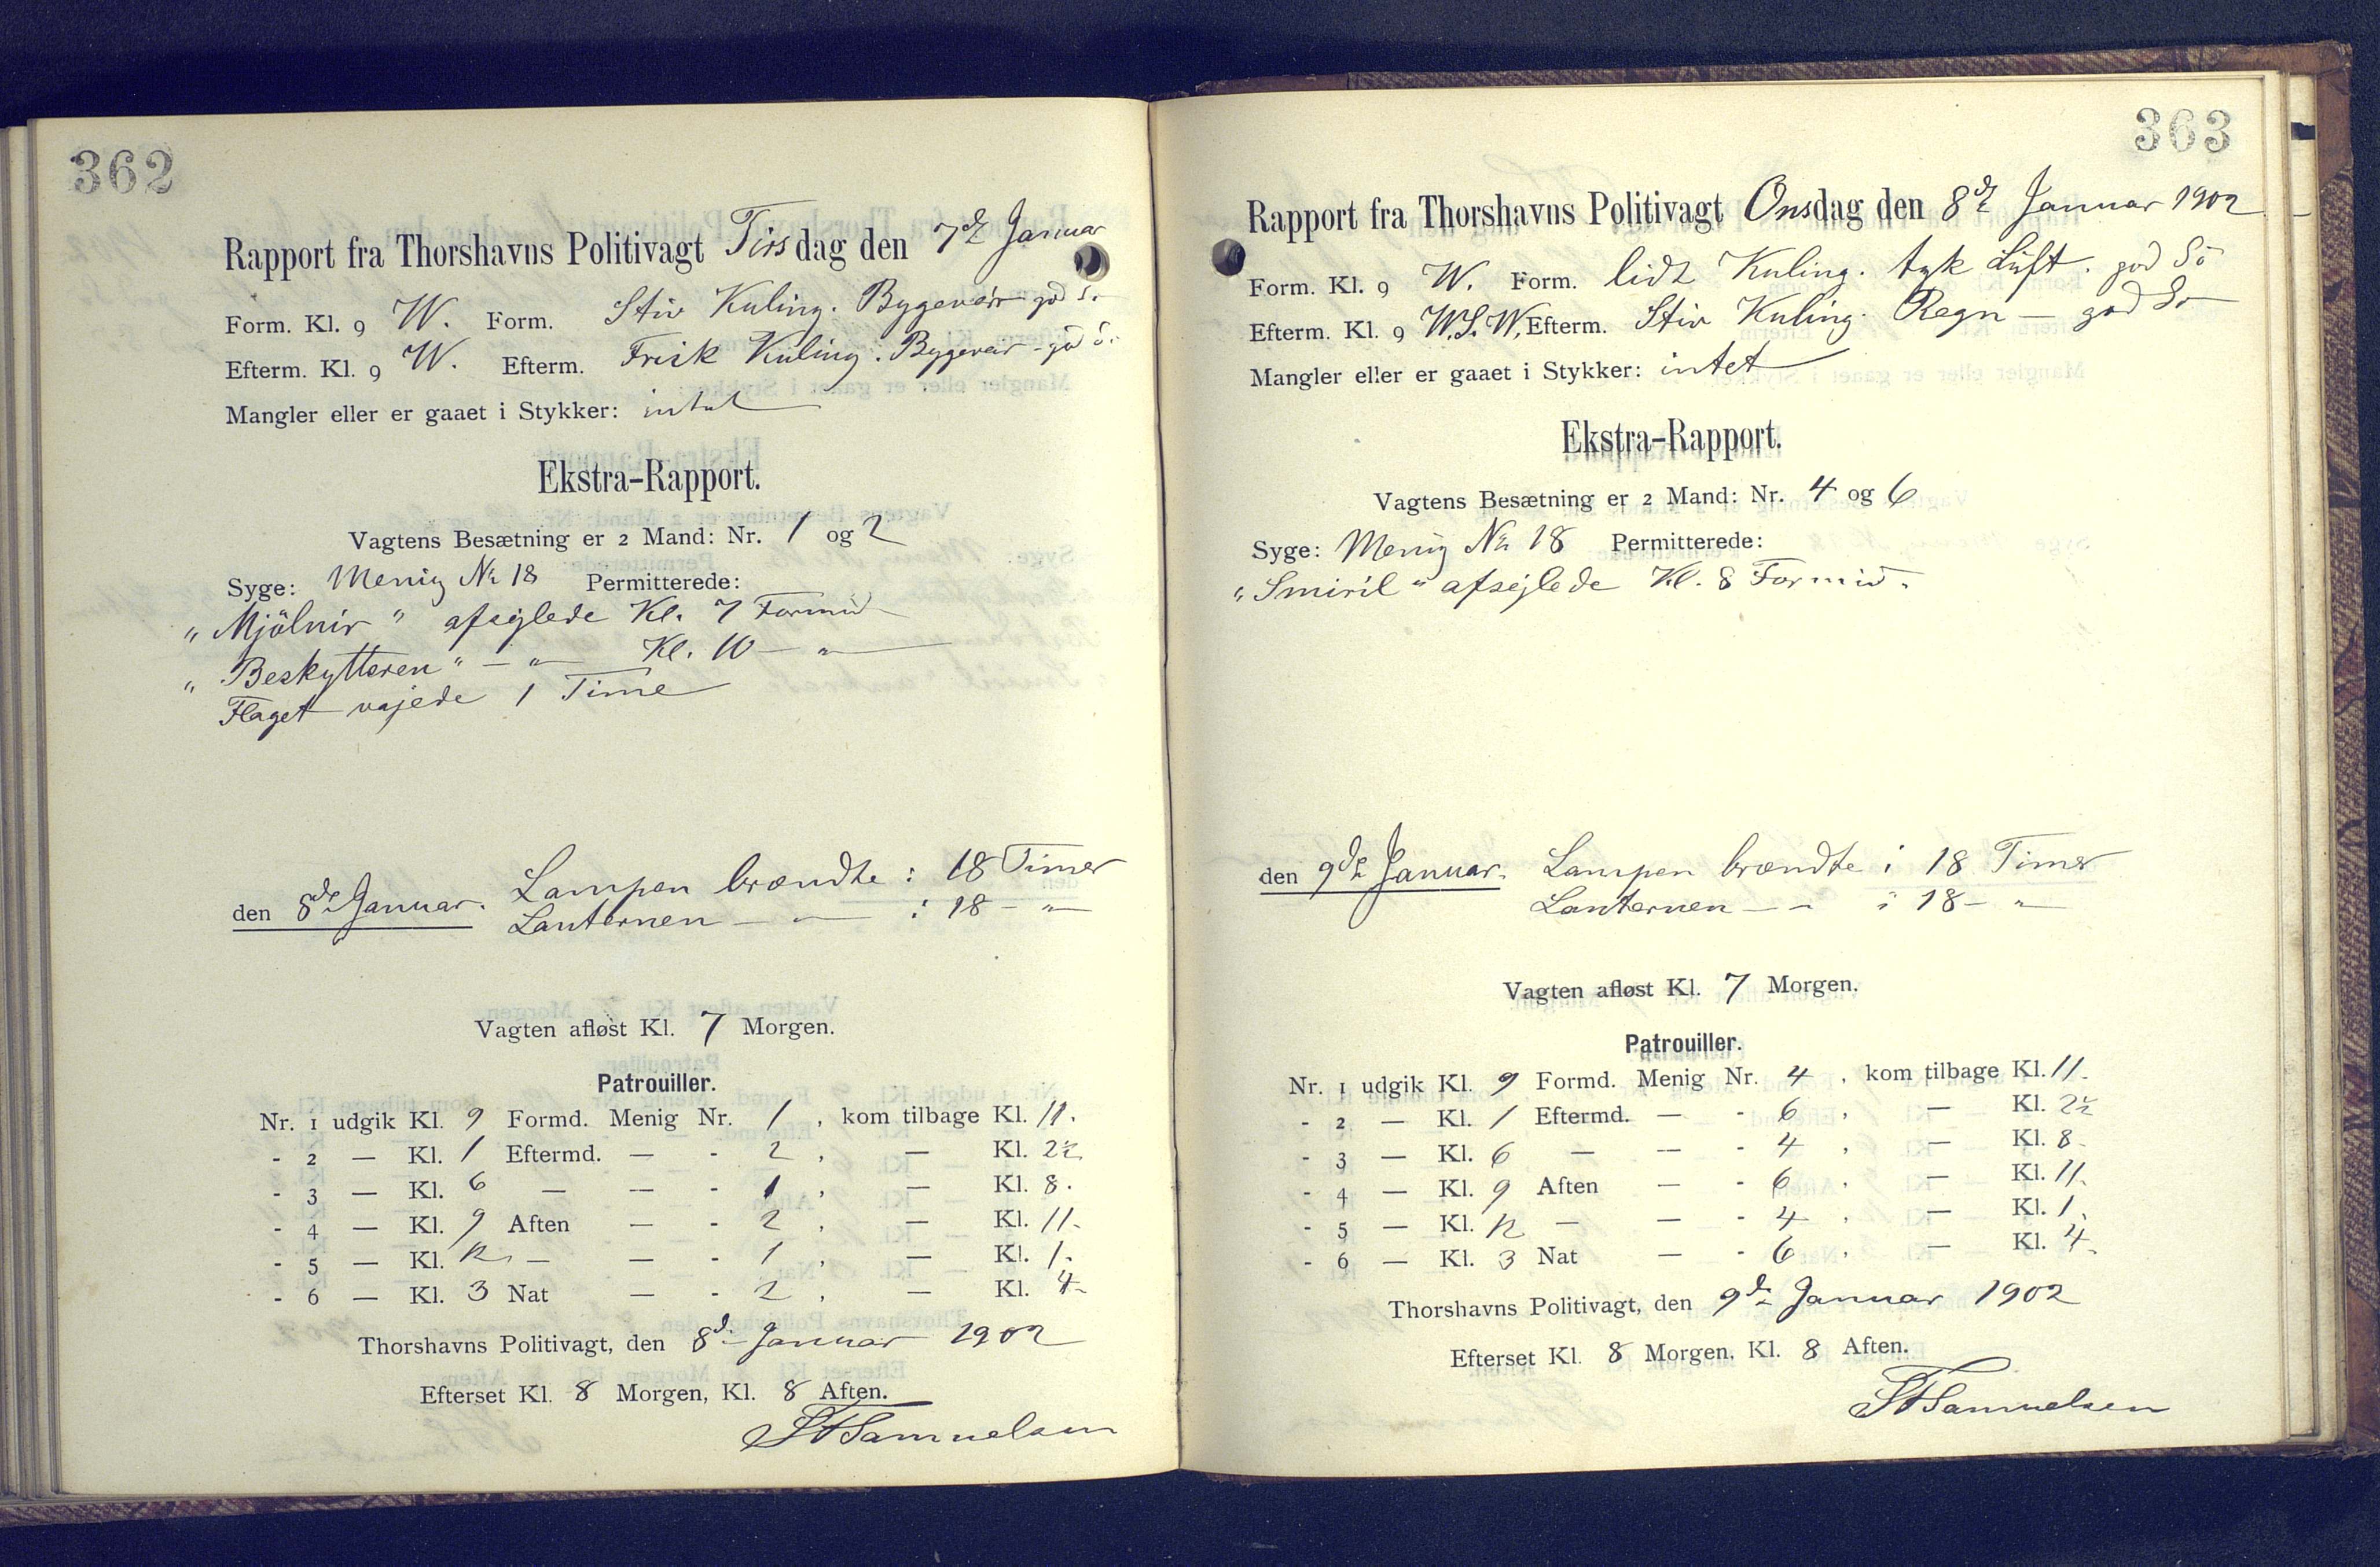 362
Rapport fra Thorshavns Politivagt Tirsdag den 7de Januar
Form. Kl. 9 W. Form. Stiv Kuling. Bygeveir god S.
Efterm. Kl. 9 W. Efterm. Frisk Kuling. Bygeveir - god S.
Mangler eller er gaaet i Stykker: intet
Ekstra-Rapport.
Vagtens Besætning er 2 Mand: Nr. 1 og 2
Syge: Menig No 18 Permitterede:
"Mjölnir" afsejlede Kl. 7 Formid
"Beskytteren" — " — Kl. 10 — " —
Flaget vajede 1 Time
den 8de Januar. Lampen brændte : 18 Timer
Lanternen — " — : 18 — " —
Vagten afløst Kl. 7 Morgen.
Patrouiller.
Nr. 1 udgik Kl. 9 Formd. Menig Nr. 1, kom tilbage Kl. 11.
- 2 — Kl. 1 Eftermd. — - 2, — Kl. 2½
- 3 — Kl. 6 — — - 1, — Kl. 8.
- 4 — Kl. 9 Aften — - 2, — Kl. 11.
- 5 — Kl. 12 — — - 1, — Kl. 1.
- 6 — Kl. 3 Nat — - 2, — Kl. 4.
Thorshavns Politivagt, den 8de Januar 1902
Efterset Kl. 8 Morgen, Kl. 8 Aften.
Samuelsen
363
Rapport fra Thorshavns Politivagt Onsdag den 8de Januar 1902
Form. Kl. 9 W. Form. lidt Kuling. tyk Luft. god Sö
Efterm. Kl. 9 W.S.W. Efterm. Stiv Kuling. Regn — god Sö
Mangler eller er gaaet i Stykker: intet
Ekstra-Rapport.
Vagtens Besætning er 2 Mand: Nr. 4 og 6
Syge: Menig No 18 Permitterede:
"Smiril" afsejlede Kl. 8 Formid.
den 9de Januar. Lampen brændte i 18 Timer
Lanternen — " — i 18 — " —
Vagten afløst Kl. 7 Morgen.
Patrouiller.
Nr. 1 udgik Kl. 9 Formd. Menig Nr. 4, kom tilbage Kl. 11.
- 2 — Kl. 1 Eftermd. — - 6, — Kl. 2½
- 3 — Kl. 6 — — - 4, — Kl. 8
- 4 — Kl. 9 Aften — - 6, — Kl. 11.
- 5 — Kl. 12 — — - 4, — Kl. 1.
- 6 — Kl. 3 Nat — - 6, — Kl. 4.
Thorshavns Politivagt, den 9de Januar 1902
Efterset Kl. 8 Morgen, Kl. 8 Aften.
Samuelsen